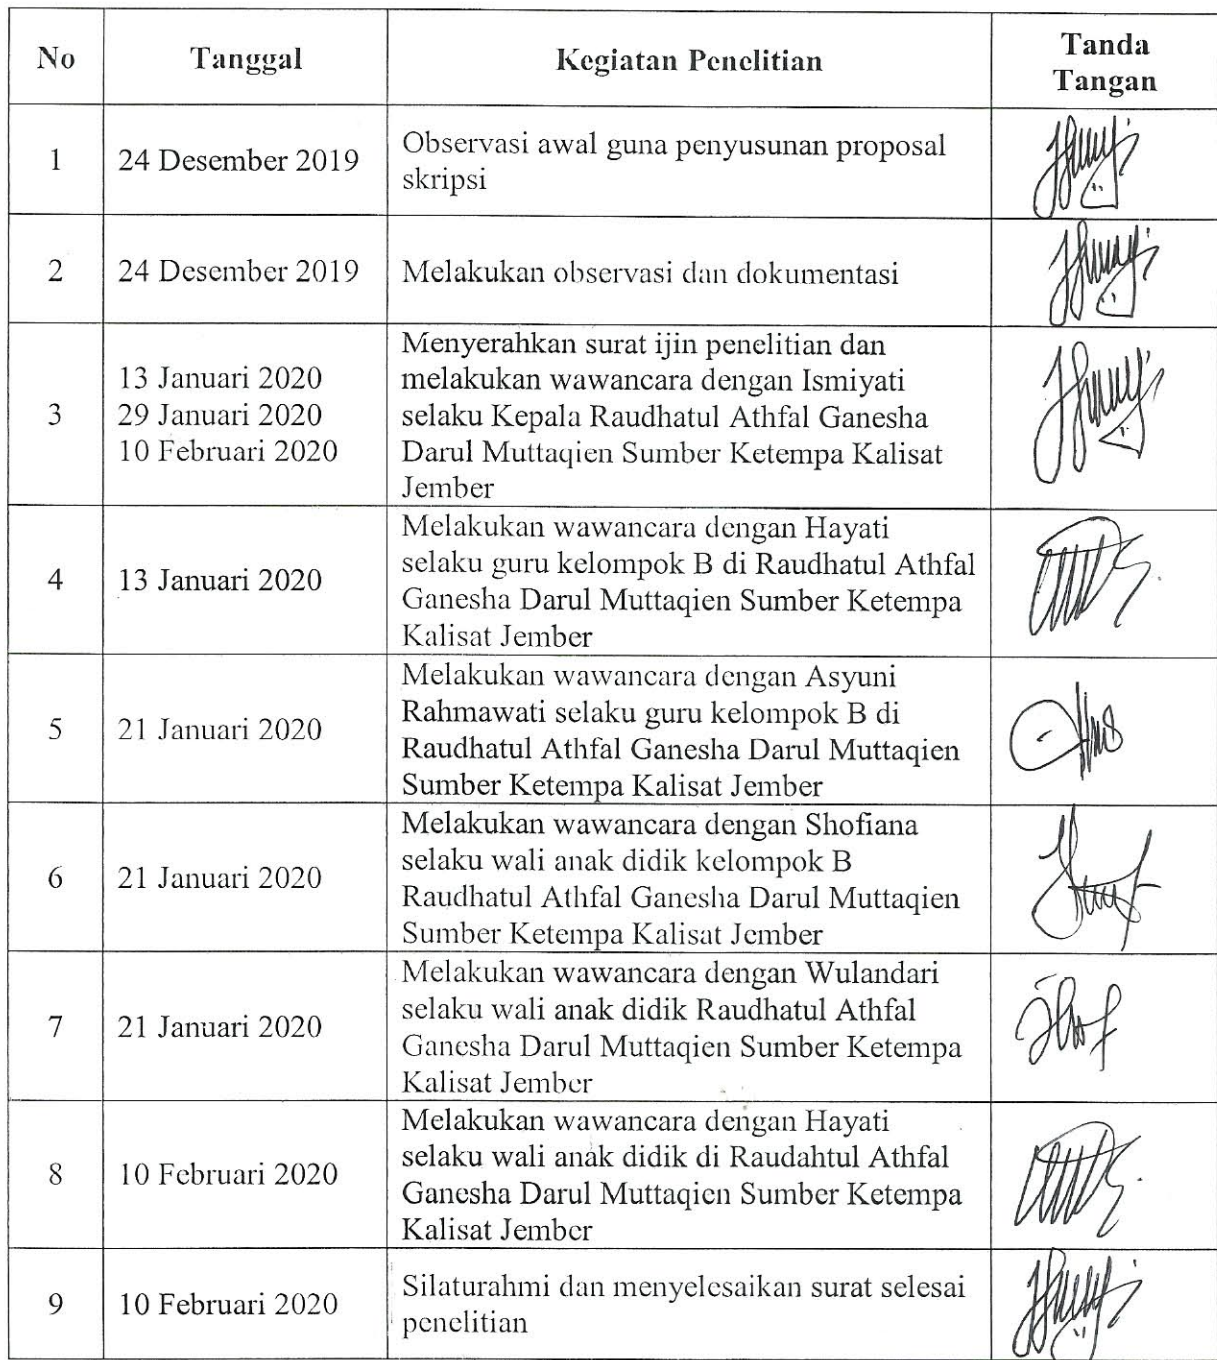 No Tanggal Kegiatan Penelitian Tanda
Tangan
1 24 Desember 2019 Observasi awal guna penyusunan proposal
skripsi
2 24 Desember 2019 Melakukan observasi dan dokumentasi
3 13 Januari 2020
29 Januari 2020
10 Februari 2020
Menyerahkan surat ijin penelitian dan
melakukan wawancara dengan Ismiyati
selaku Kepala Raudhatul Athfal Ganesha
Darul Muttaqien Sumber Ketempa Kalisat
Jember
4 13 Januari 2020 Melakukan wawancara dengan Hayati
selaku guru kelompok B di Raudhatul Athfal
Ganesha Darul Muttaqien Sumber Ketempa
Kalisat Jember
5 21 Januari 2020 Melakukan wawancara dengan Asyuni
Rahmawati selaku guru kelompok B di
Raudhatul Athfal Ganesha Darul Muttaqien
Sumber Ketempa Kalisat Jember
6 21 Januari 2020 Melakukan wawancara dengan Shofiana
selaku wali anak didik kelompok B
Raudhatul Athfal Ganesha Darul Muttaqien
Sumber Ketempa Kalisat Jember
7 21 Januari 2020 Melakukan wawancara dengan Wulandari
selaku wali anak didik Raudhatul Athfal
Ganesha Darul Muttaqien Sumber Ketempa
Kalisat Jember
8 10 Februari 2020 Melakukan wawancara dengan Hayati
selaku wali anak didik di Raudahtul Athfal
Ganesha Darul Muttaqien Sumber Ketempa
Kalisat Jember
9 10 Februari 2020 Silaturahmi dan menyelesaikan surat selesai
penelitian